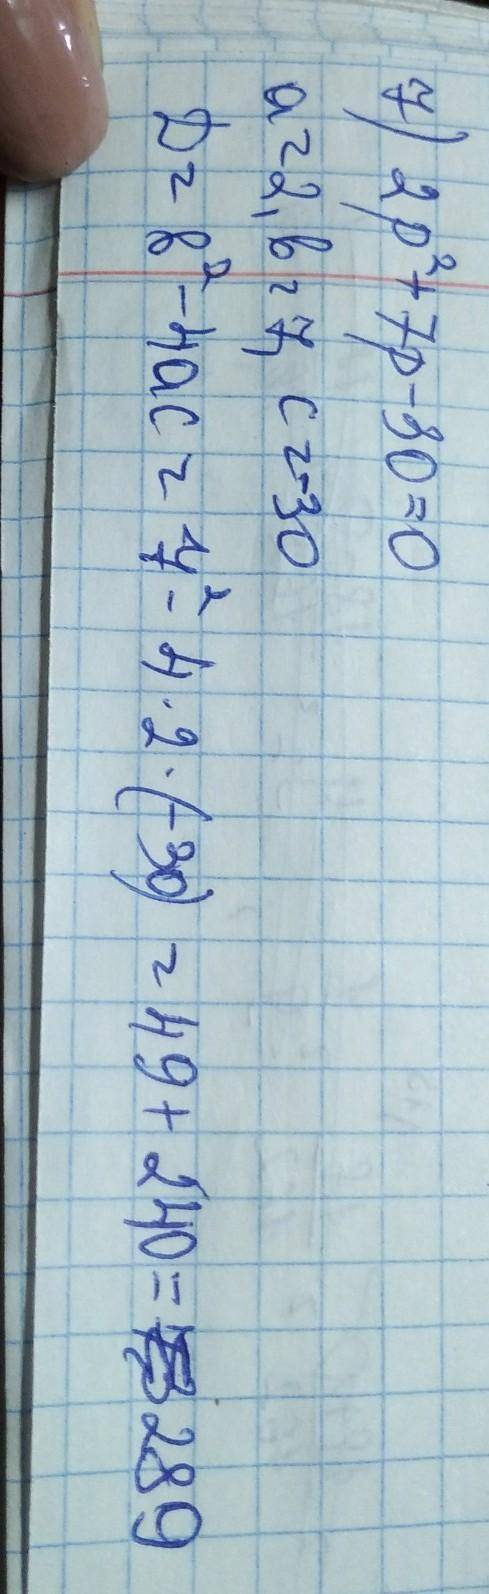 7) 2p² + 7p - 30 = 0
a = 2, b = 7, c = -30
D = b² - 4ac = 7² - 4 · 2 · (-30) = 49 + 240 = 289